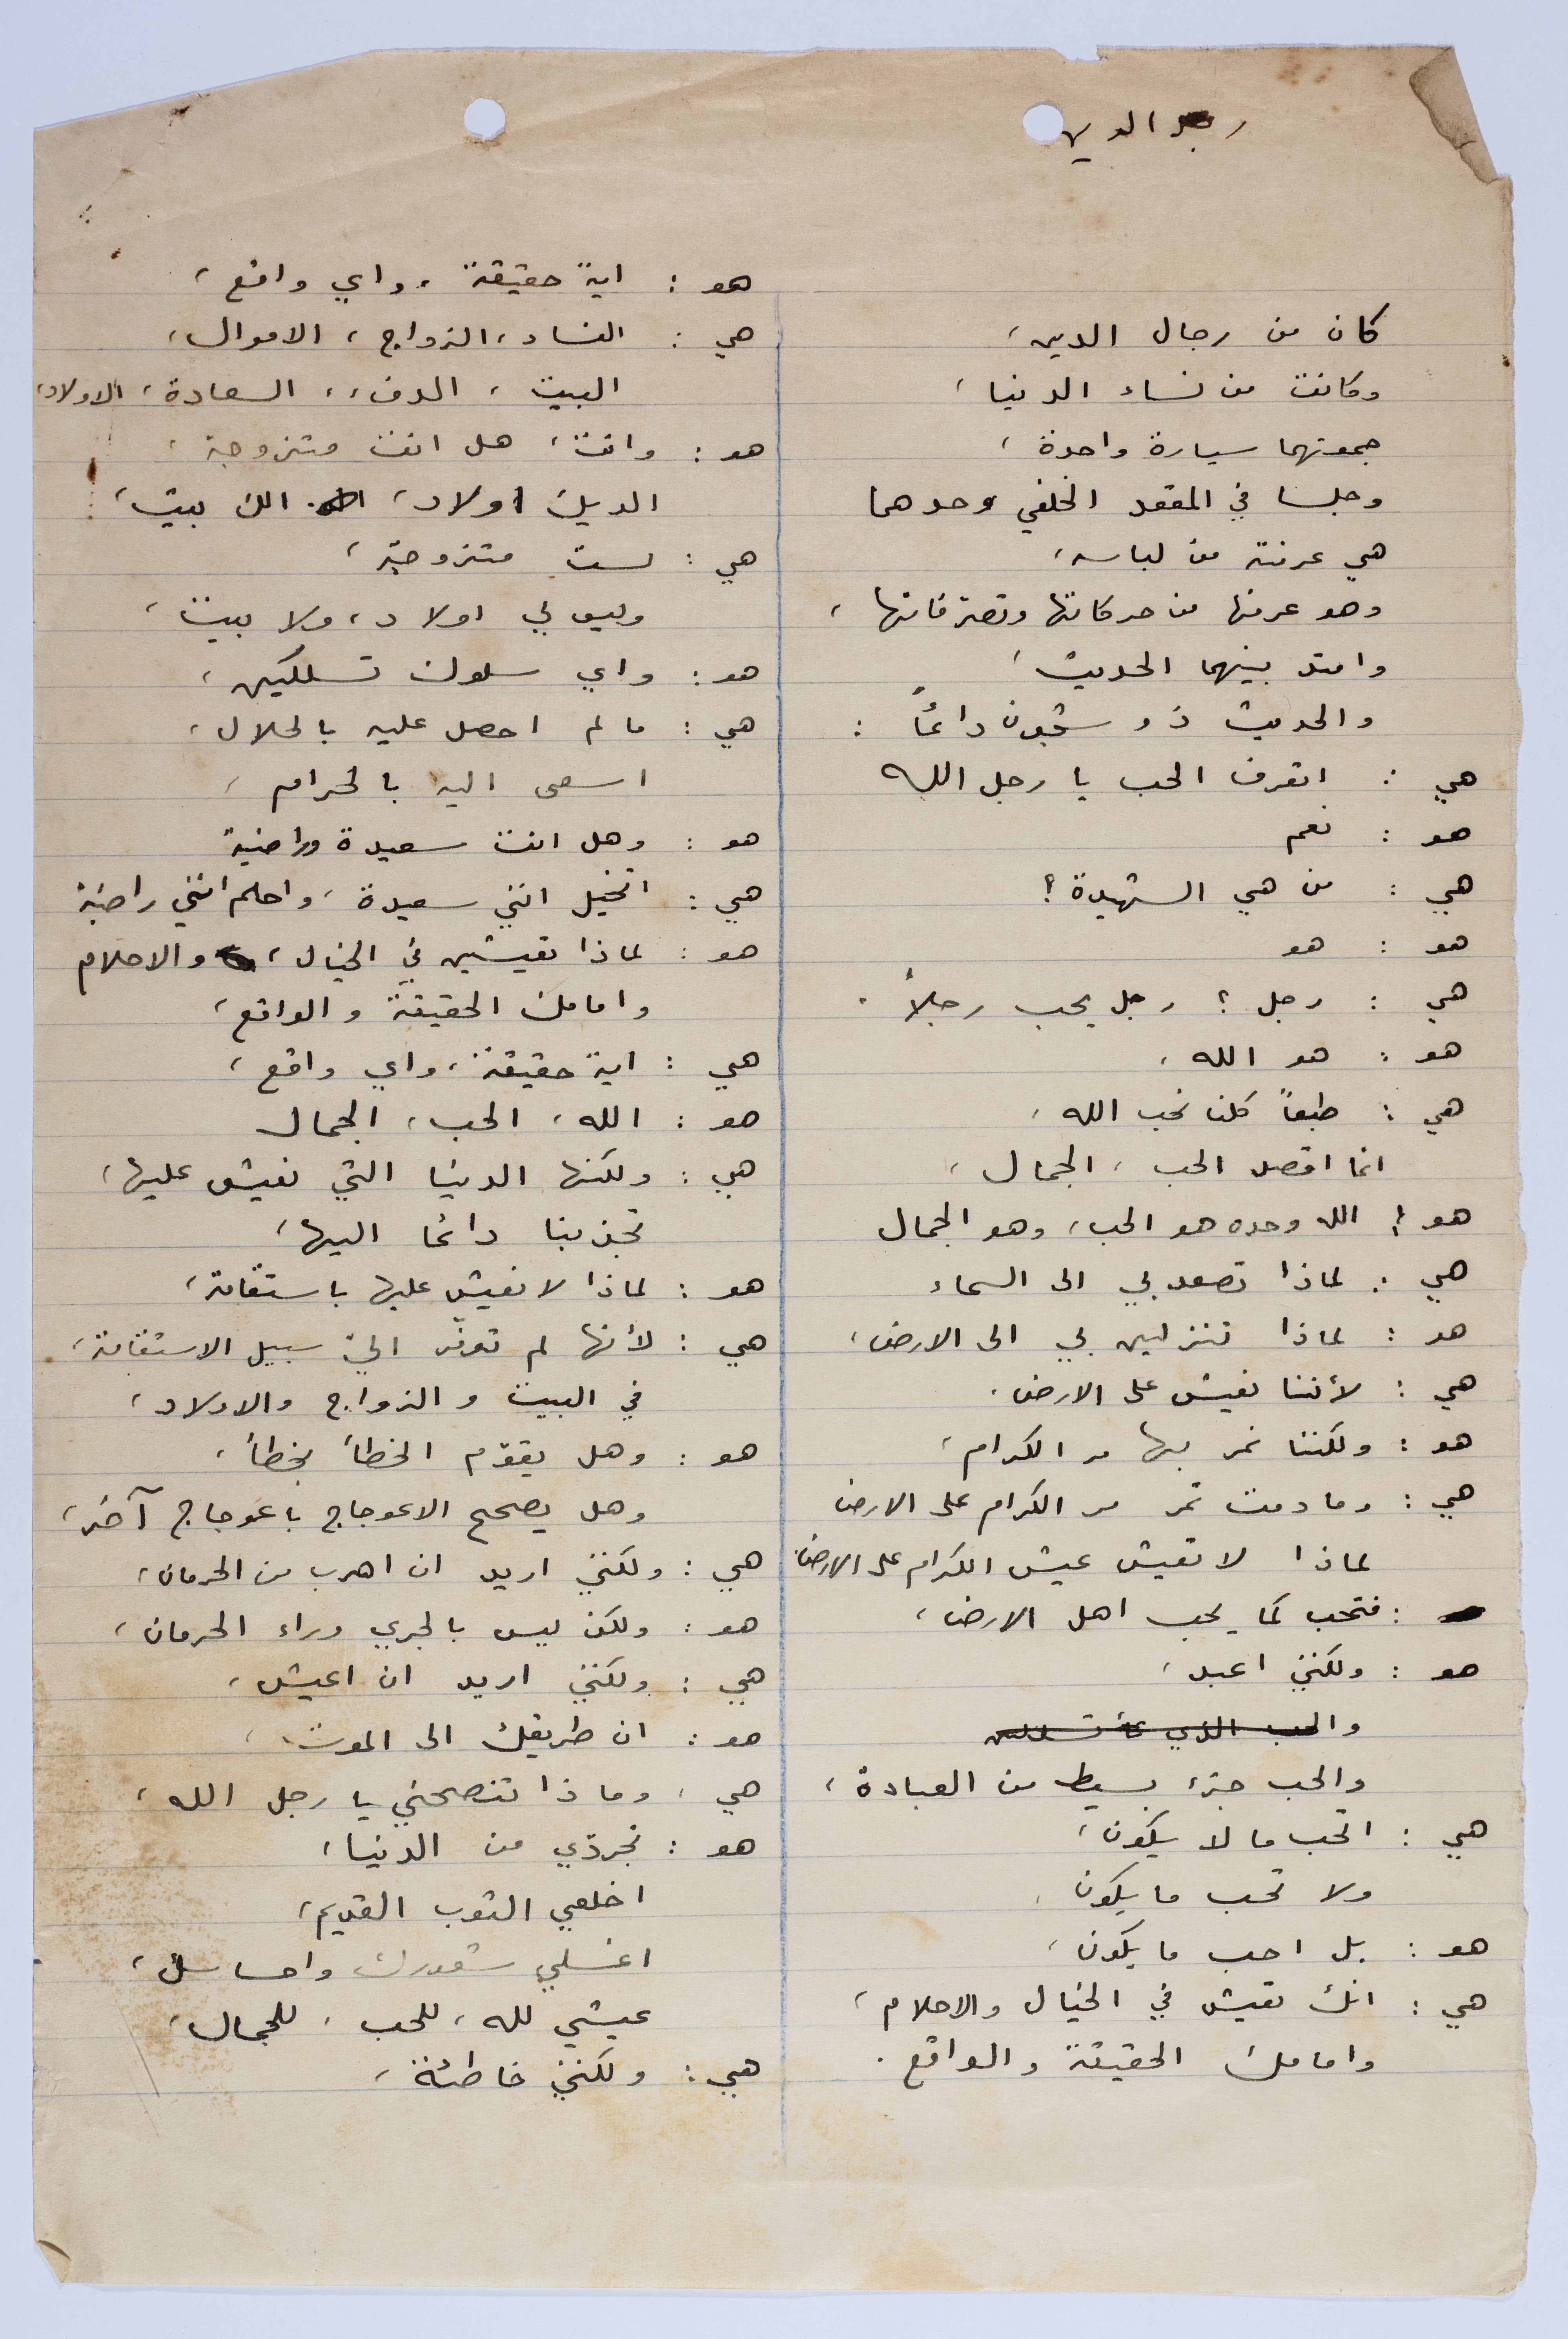 رجل الدين
كان من رجال الدين،
وكانت من نساء الدنيا،
جمعتهما سيارة واحدة،
وجلسا في المقعد الخلفي وحدهما
هي عرفته من لباسه،
وهو عرفها من حركاتها وتصرفاتها،
وامتد بينهما الحديث،
والحديث ذو شجون دائماً :
هي : اتعرف الحب يا رجل الله
هو : نعم
هي : من هي الشهيدة؟
هو : هو
هي : رجل؟ رجل يحب رجلاً.
هو : هو الله،
هي : طبعاً كلنا نحب الله،
انما اقصد الحب، الجمال،
هو : الله وحده هو الحب، وهو الجمال
هي : لماذا تصعد بي الى السماء
هو : لماذا تنزلين بي الى الارض،
هي : لأننا نعيش على الارض.
هو : ولكننا نمر بها مر الكرام،
هي : وما دمت تمر مر الكرام على الارض
لماذا لا تعيش عيش الكرام على الارض
: فتحب كما يحب اهل الارض،
هو : ولكنني اعبد،
والحب الذي
والحب جزء بسيط من العبادة،
هي : اتحب ما لا يكون،
ولا تحب ما يكون
هو : بل احب ما يكون،
هي : انك تعيش في الخيال والاحلام،
وامامك الحقيقة والواقع.
هو : اية حقيقة، واي واقع،
هي : النساء، الزواج، الاموال،
البيت، الدفء، السعادة، الاولاد،
هو : وانت، هل انت متزوجة،
الديك اولاد، الك بيت،
هي : لست متزوجة،
وليس لي اولاد، ولا بيت،
هو : واي سلوك تسلكين،
هي : ما لم احصل عليه بالحلال،
اسعى اليه بالحرام،
هو : وهل انت سعيدة وراضية
هي : اتخيل انني سعيدة، واحلم انني راضية
هو : لماذا تعيشين في الخيال، والاحلام
وامامك الحقيقة والواقع،
هي : اية حقيقة، واي واقع،
هو : الله، الحب، الجمال
هي : ولكنها الدنيا التي نعيش عليها،
تجذبنا دائما اليها،
هو : لماذا لا نعيش عليها باستقامة،
هي : لأنها لم توفّر اليّ سبيل الاستقامة،
في البيت والزواج والاولاد،
هو : وهل يقوّم الخطأ بخطأ،
وهل يصحح الاعوجاج باعوجاج آخر،
هي : ولكنني اريد ان اهرب من الحرمان،
هو : ولكن ليس بالجري وراء الحرمان،
هي : ولكنني اريد ان اعيش،
هو : ان طريقك الى الموت،
هي ، وماذا تنصحني يا رجل الله،
هو : تجردّي من الدنيا،
اخلعي الثوب القديم،
اغسلي شعورك واحساسك،
عيشي لله، للحب، للجمال،
هي : ولكنني خاطئة،